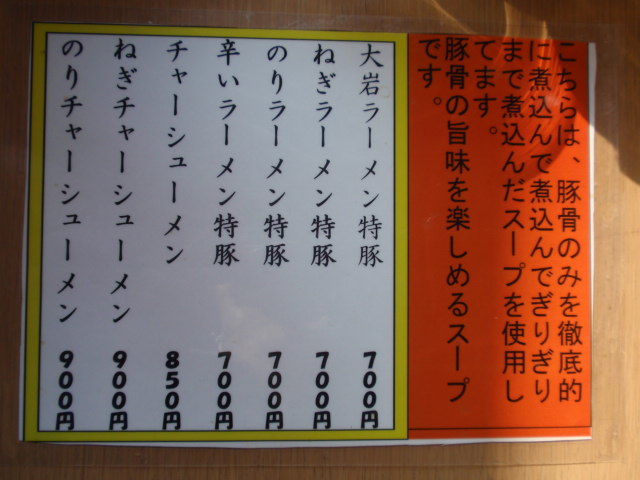 こちらは、豚骨のみを徹底的
に煮込んで煮込んでぎりぎり
まで煮込んだスープを使用し
てます。
豚骨の旨味を楽しめるスープ
です。
大岩ラーメン特豚 700円
ねぎラーメン特豚 700円
のりラーメン特豚 700円
辛いラーメン特豚 700円
チャーシューメン 850円
ねぎチャーシューメン 900円
のりチャーシューメン 900円